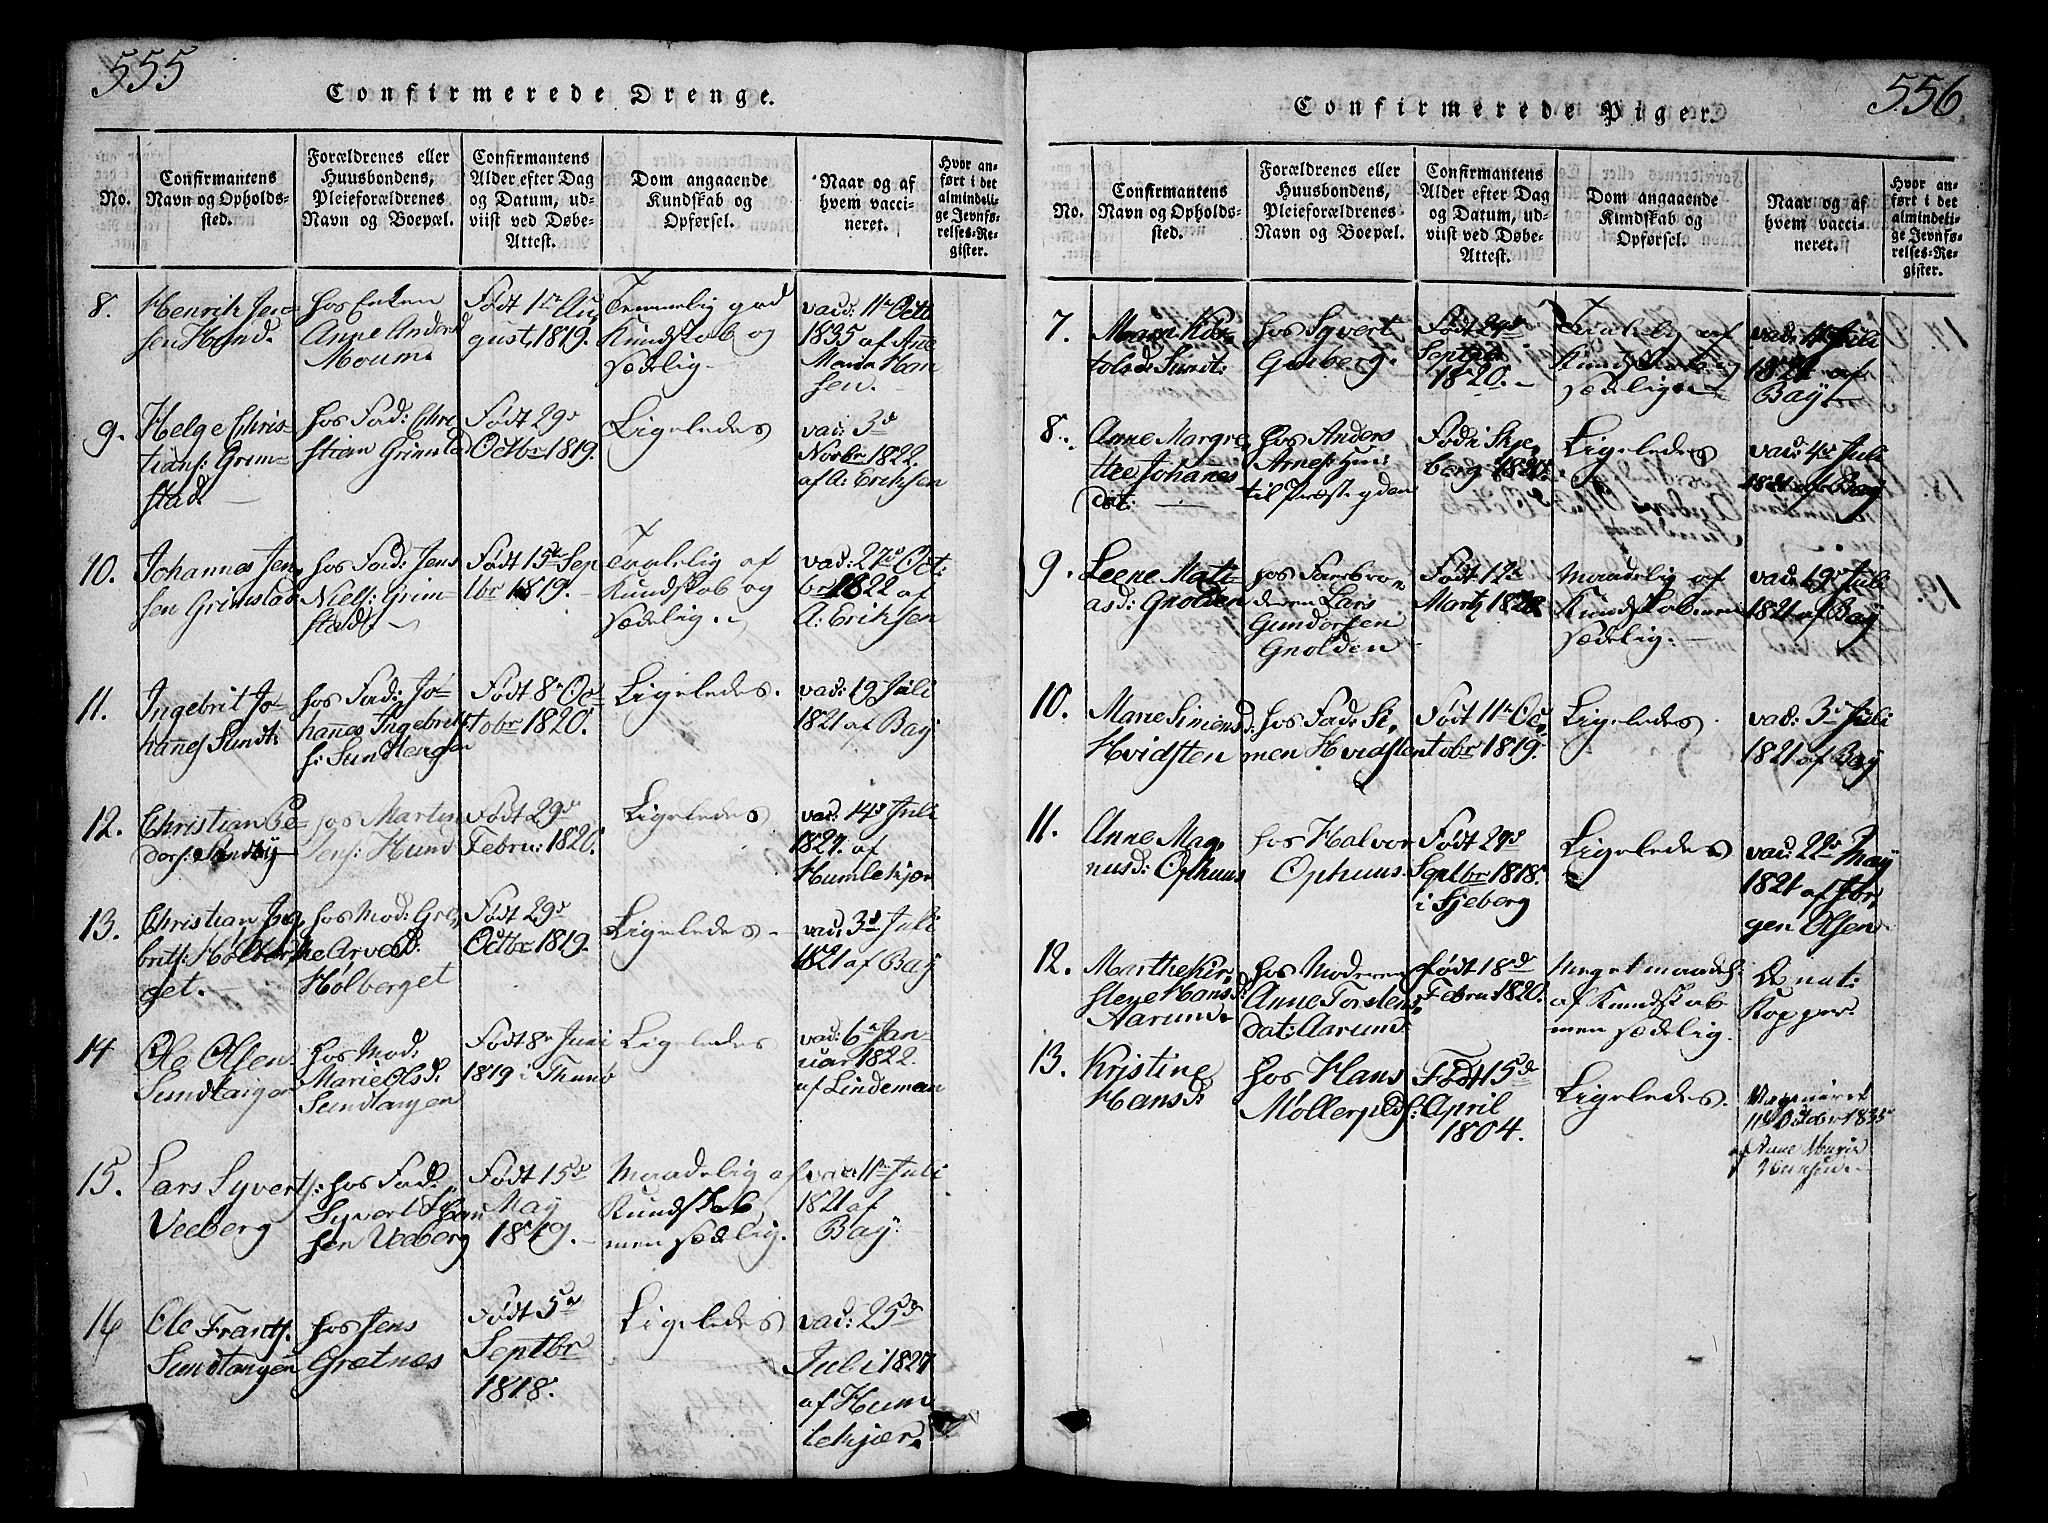 555
Confirmerede Drenge.
No.
Confirmantens
Navn og Opholds-
sted.
Forældrenes eller
Huusbondens,
Pleieforældrenes
Navn og Boepæl.
Confirmantens
Alder efter Dag
og Datum, ud-
viist ved Døbe-
Attest.
Dom angaaende
Kundskab og
Opførsel.
Naar og af
hvem vacci-
neret.
Hvor an-
ført i det
almindeli-
ge Jevnfø-
relses-Re-
gister.
8.
Henrik Jen-
sen Hund.
hos Enken
Anne Anders
Moum.
Født 1ste Au
gust, 1819.
Temmelig god
Kundskab og
sædelig.
vac: 11te Octb
1835 af Ane
Maria Han
sen.
9.
Helge Chris-
tians: Grim-
stad
hos Fad: Chri
stian Grimstad
Født 29d
Octbr 1819.
Ligeledes
vac: 3d
Novbr 1822.
af A: Eriksen
10.
Johannes Jen
sen Grimstad
hos Fad: Jens
Niels: Grim-
stad
Født 15de Sep
tbr 1819.
Taalelig af
Kundskab og
sædelig.
vad: 27d Oct:
br 1822 af
A: Eriksen
11.
Ingebrit Jo-
hannes Sundt:
hos Fad: Jo-
hannes Ingebrit
s: Sundtangen
Født 8de Oc
tobr 1820.
Ligeledes.
vad: 19 Juli
1821 af Baÿ
12.
Christian Pe-
ders: Sundby
hos Martin
Jens: Hund
Født 29d
Febru: 1820.
Ligeledes
vad: 14d Juli
1827. af
Humlekjær
13.
Christian Ing
brits: Hølber
get.
hos Mod: Gre
the Arvesd:
Hølberget
Født 29d
Octbr 1819.
Ligeledes
vad: 3d Juli
1821 af Baÿ
14
Ole Olsen
Sundtangen
hos Mod:
Marie Olsd:
Sundtangen
Født 8de Juni
1819 i Thunø
Ligeledes
vad: 6te Jan-
uar 1822.
af Lindeman
15.
Lars Syvert
s:
Veeberg
hos Fad:
Syvert Han
sen Veeberg
Født 15d
May
1819.
Maadelig af
Kundskab
men sædelig.
vac 11te Juli
1821 af
Baÿ
16
Ole Frants:
Sundtangen
hos Jens
Grætnes
Født 5te
Septbr
1818.
Ligeledes
vad: 25d
Juli 1827
af Hum
lekjær.
556
Confirmerede Piger.
No.
Confirmantens
Navn og Opholds-
sted.
Forældrenes eller
Huusbondens,
Pleieforældrenes
Navn og Boepæl.
Confirmantens
Alder efter Dag
og Datum, ud-
viist ved Døbe-
Attest.
Dom angaaende
Kundskab og
Opførsel.
Naar og af
hvem vacci-
neret.
Hvor an-
ført i det
almindeli-
ge Jevnfø-
relses-Re-
gister.
7.
tolsd: Sundt:
hos Syvert
Født 29d
Septbr
1820.
Taalelig af
Kundskab og
sædelig
vad: 4de Juli
1821 af
Baÿ
8.
Anne Margre
thee Johannes
dat:
hos Anders
til Præstegden
Født i Skje
berg 1820
Ligeledes
vad: 4de Juli
1821 af Baÿ
9.
Leene Mati-
asd: Gnolden
hos Farbro
deren Lars
Gundersen
Gnolden
Født 12te
Martz 1820
Maadelig af
Kundskab men
sædelig.
vad: 19d Juli
1821 af Baÿ
10.
Marie Simensd:
Hvidsten
hos Fad: Si
men Hvidsten
Født 11te Oc
tobr 1819.
Ligeledes
vad: 3d Juli
1821 af Baÿ
11.
Anne Mag
nusd: Ophuus
hos Halvor
Ophuus
Født 29d
Septbr 1818.
i Sjeberg
Ligeledes
vad: 22d May
1821 af Jør
gen Olsen
12.
Marthe Kir
stene Hansd:
Aarum
hos Moderen
Anne Torstens
dat: Aarum
Født 18d
Febru 1820.
Meget maadel:
af Kundskab
men sædelig.
De nat:
Kopper.
13.
Kristine
Hansd:
hos Hans
Møllerpeds:
Født 15d
April
1804.
Ligeledes.
Vaxineret
11te October 1835
af Anne Maria
Hansen